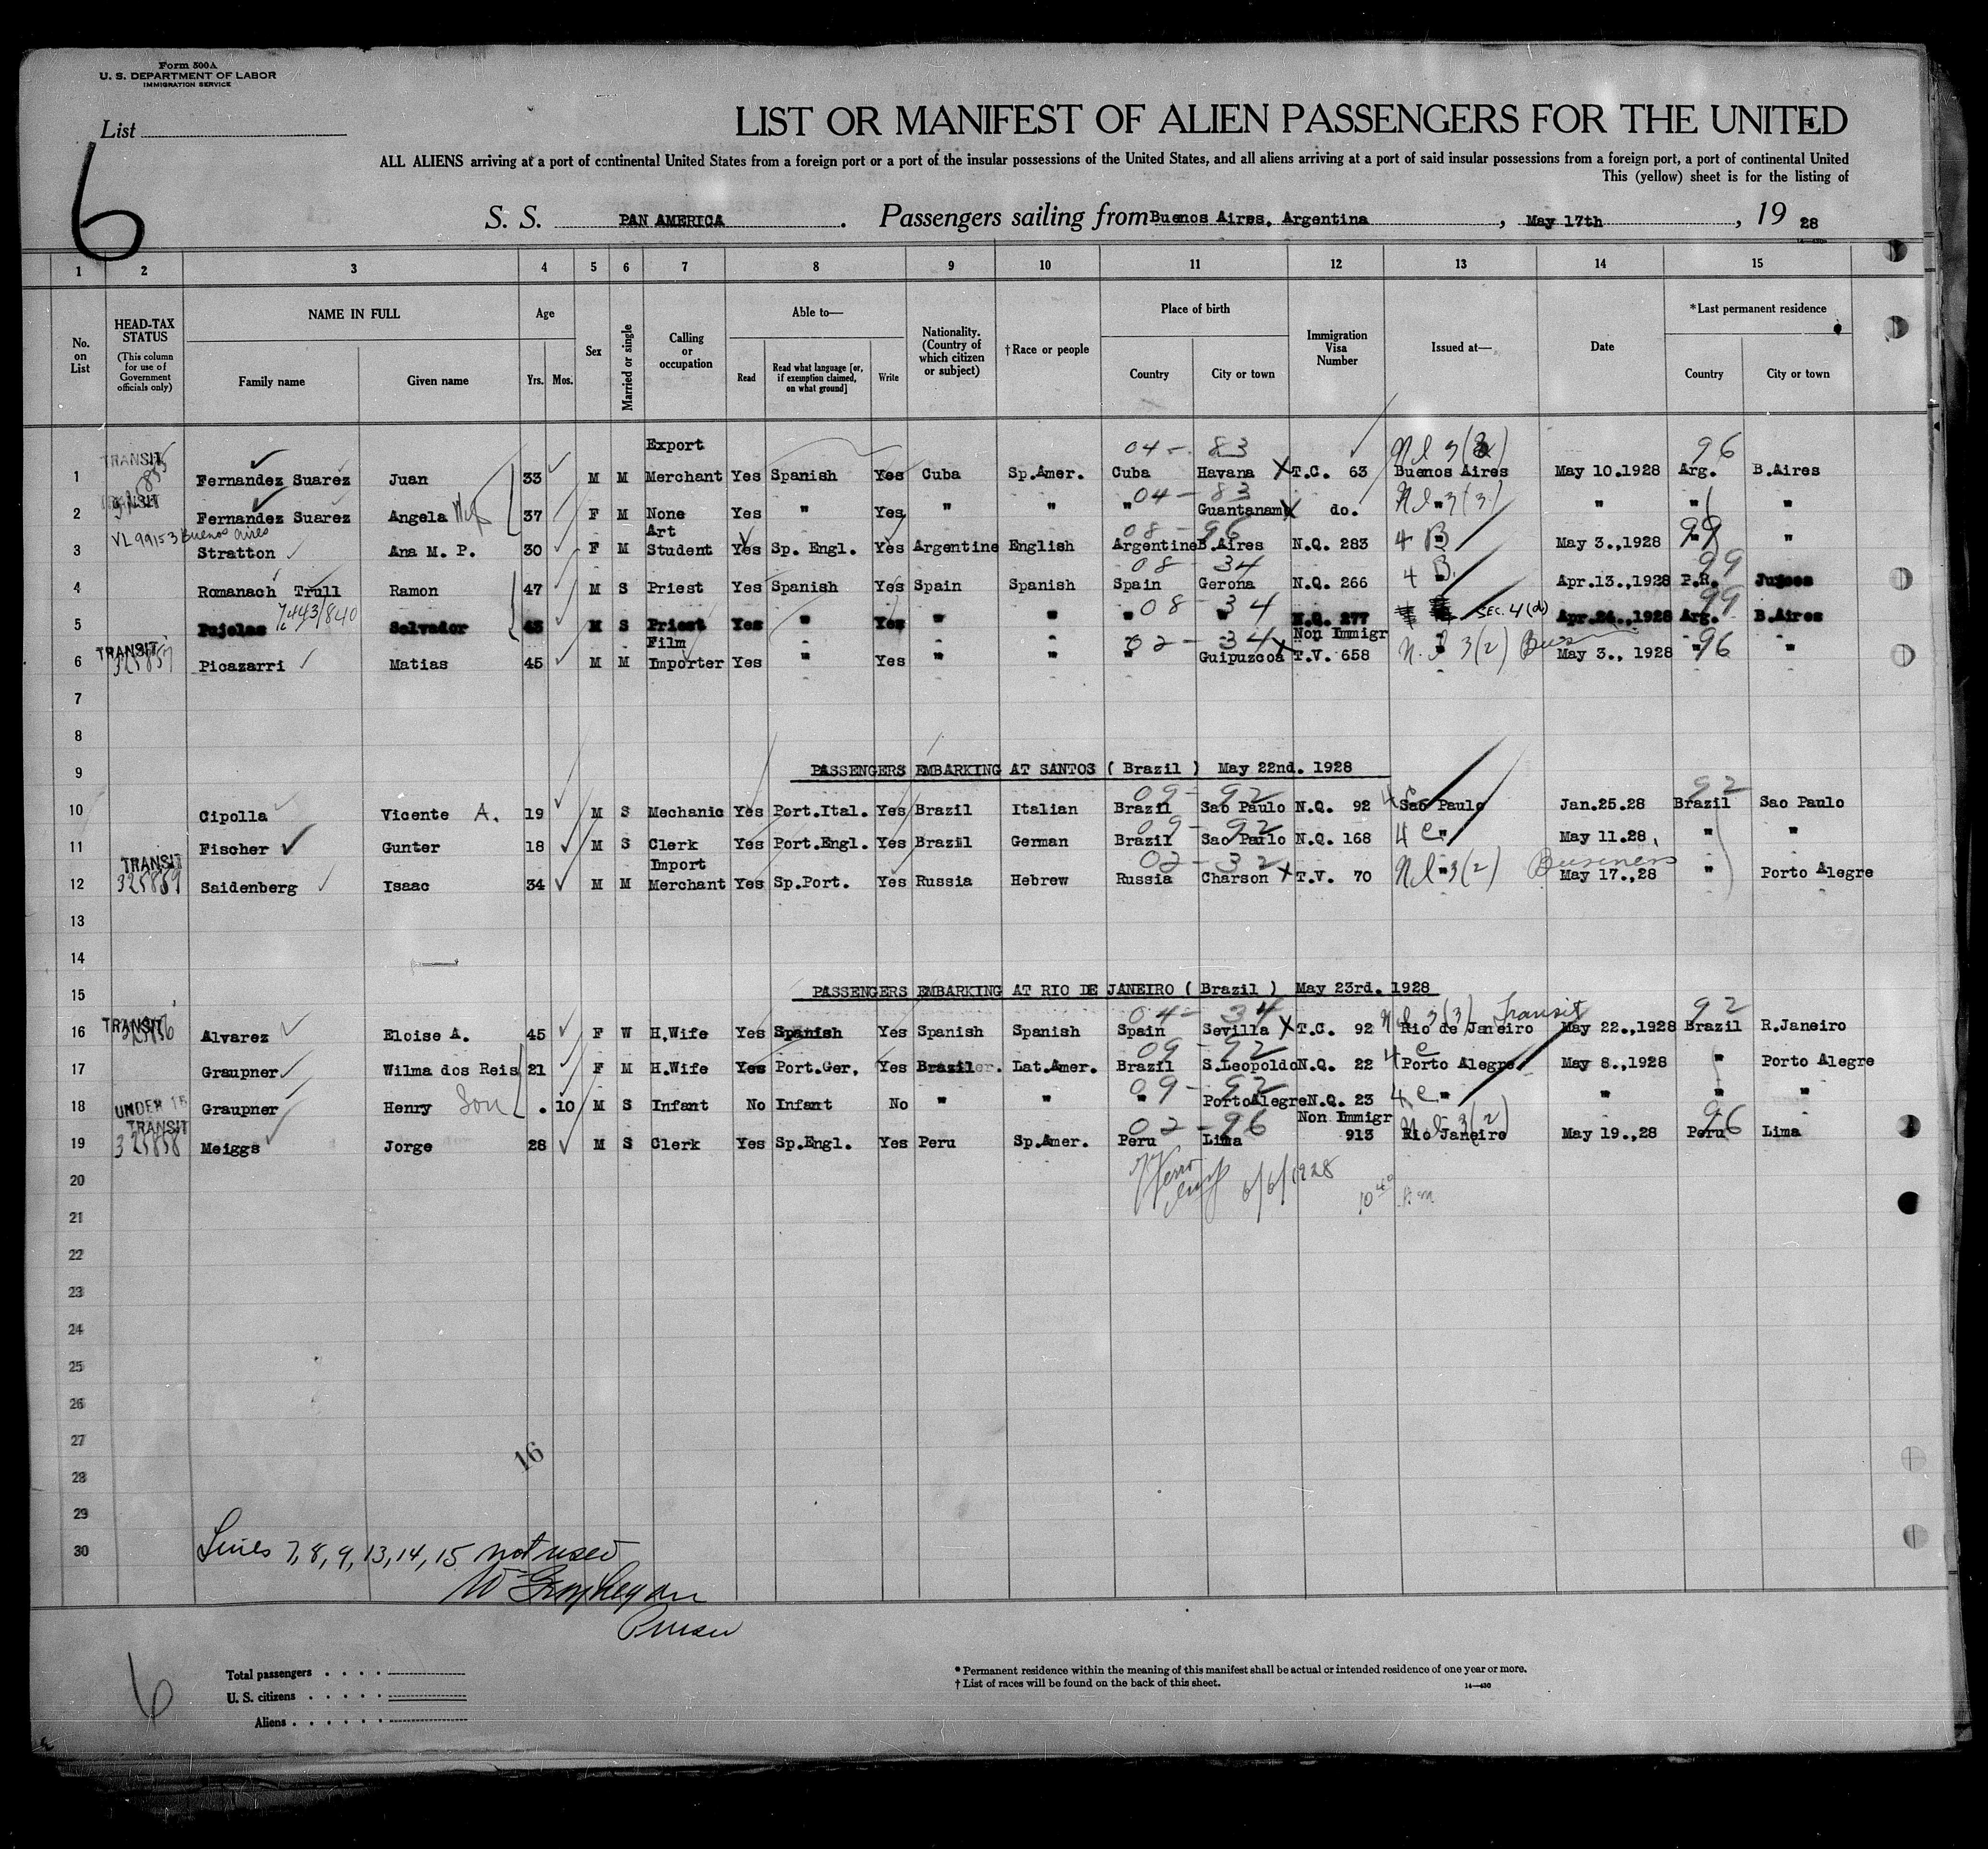 Form 500A
U. S. DEPARTMENT OF LABOR
IMMIGRATION SERVICE
List
6
LIST OR MANIFEST OF ALIEN PASSENGERS FOR THE UNITED
ALL ALIENS arriving at a port of continental United States from a foreign port or a port of the insular possessions of the United States, and all aliens arriving at a port of said insular possessions from a foreign port, a port of continental United
This (yellow) sheet is for the listing of
S. S. PAN AMERICA. Passengers sailing from Buenos Aires, Argentina, May 17th, 19 28
1 2 3 4 5 6 7 8 9 10 11 12 13 14 15
No. on List
HEAD-TAX STATUS
(This column for use of Government officials only)
NAME IN FULL
Family name Given name
Age
Yrs. Mos.
Sex
Married or single
Calling or occupation
Able to—
Read
Read what language [or, if exemption claimed, on what ground]
Write
Nationality. (Country of which citizen or subject)
†Race or people
Place of birth
Country City or town
Immigration Visa Number
Issued at—
Date
*Last permanent residence
Country City or town
Export
04 - 83 96
1 TRANSIT Fernandez Suarez Juan 33 M M Merchant Yes Spanish Yes Cuba Sp.Amer. Cuba Havana X T.C. 63 Buenos Aires May 10.1928 Arg. B.Aires
04 - 83
2 TRANSIT Fernandez Suarez Angela Wife 37 F M None Yes " Yes " " " Guantanamo X do. " " " "
VL 99153 Buenos Aires
Art
08 - 96 99
3 Stratton Ana M. P. 30 F M Student Yes Sp. Engl. Yes Argentine English Argentine B.Aires N.Q. 283 4 B May 3.,1928 " "
08 - 34 99
4 Romanach Trull Ramon 47 M S Priest Yes Spanish Yes Spain Spanish Spain Gerona N.Q. 266 4 B. Apr.13.,1928 P.R.
08 - 34 99
5 Pujolas Salvador M S Priest Yes " Yes " " " " N.Q. 277 SEC. 4(d) Apr.24.,1928 Arg. B.Aires
Film
02 - 34 96
Non Immigr
6 TRANSIT 325857 Picazarri Matias 45 M M Importer Yes " Yes " " " Guipuzcoa X T.V. 658 3(2) Bus May 3., 1928 " "
7
8
9 PASSENGERS EMBARKING AT SANTOS ( Brazil ) May 22nd. 1928
09 - 92 92
10 Cipolla Vicente A. 19 M S Mechanic Yes Port.Ital. Yes Brazil Italian Brazil Sao Paulo N.Q. 92 4 C Sao Paulo Jan.25.28 Brazil Sao Paulo
09 - 92
11 Fischer Gunter 18 M S Clerk Yes Port.Engl. Yes Brazil German Brazil Sao Parlo N.Q. 168 4 C " May 11.28, " "
Import
02 - 32 Business
12 TRANSIT 325859 Saidenberg Isaac 34 M M Merchant Yes Sp.Port. Yes Russia Hebrew Russia Charson X T.V. 70 " 3(2) May 17.,28 " Porto Alegre
13
14
15 PASSENGERS EMBARKING AT RIO DE JANEIRO ( Brazil ) May 23rd. 1928
04 - 34 3(3) Transit 92
16 TRANSIT Alvarez Eloise A. 45 F W H.Wife Yes Spanish Yes Spanish Spanish Spain Sevilla X T.C. 92 Rio de Janeiro May 22.,1928 Brazil R.Janeiro
09 - 92
17 Graupner Wilma dos Reis 21 F M H.Wife Yes Port.Ger. Yes Brazil Lat.Amer. Brazil S.Leopoldo N.Q. 22 4 C Porto Alegre May 8.,1928 " Porto Alegre
09 - 92
18 UNDER 16 Graupner Henry Son . 10 M S Infant No Infant No " " " PortoAlegre N.Q. 23 4 C " " " "
02 - 96 Non Immigr 3(2) 96
19 TRANSIT 325858 Meiggs Jorge 28 M S Clerk Yes Sp.Engl. Yes Peru Sp.Amer. Peru Lima 913 Rio Janeiro May 19.,28 Peru Lima
20 6/6/1928
10 40 A.m
21
22
23
24
25
26
27
16
28
29
30
Lines 7, 8, 9, 13, 14, 15 not used
Purser
6
Total passengers
U. S. citizens
Aliens
* Permanent residence within the meaning of this manifest shall be actual or intended residence of one year or more.
† List of races will be found on the back of this sheet.
14—430